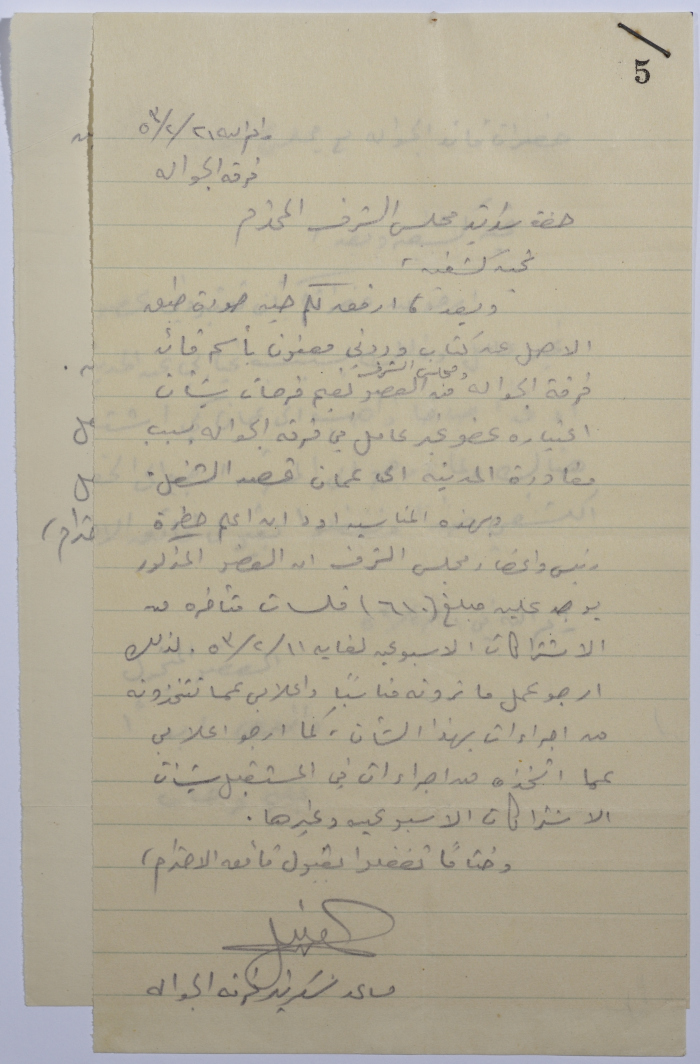 5
٥٣/٢/٢١
فرقة الجواله
حضرة سكرتير مجلس الشرف المحترم
تحيه كشفيه،
وبعد، ارفع لكم طيه صورة طبق
الاصل عن كتاب وردني معنون بأسم قائد
فرقة الجواله ومجلس الشرف من العضو نعيم فرحات بشأن
اعتباره عضو غير عامل في فرقة الجواله بسبب
مغادرة المدينه الى عمان قصد الشغل.
وبهذه المناسبه اود ان اعلم حضرة
رئيس واعضاء مجلس الشرف ان العضو المذكور
يوجد عليه مبلغ (٦١٠) فلسات متأخره من
الاشتراكات الاسبوعيه لغاية ٥٣/٢/١١. لذلك
ارجو عمل ما ترونه مناسبًا واعلامي عما تتخذونه
من اجراءات بهذا الشأن، كما ارجو اعلامي
عما اتخذه من اجراءات في المستقبل بشأن
الاشتراكات الاسبوعيه وغيرها.
وختامًا تفضلوا بقبول فائق الاحترام،
مساعد سكرتير فرقة الجواله